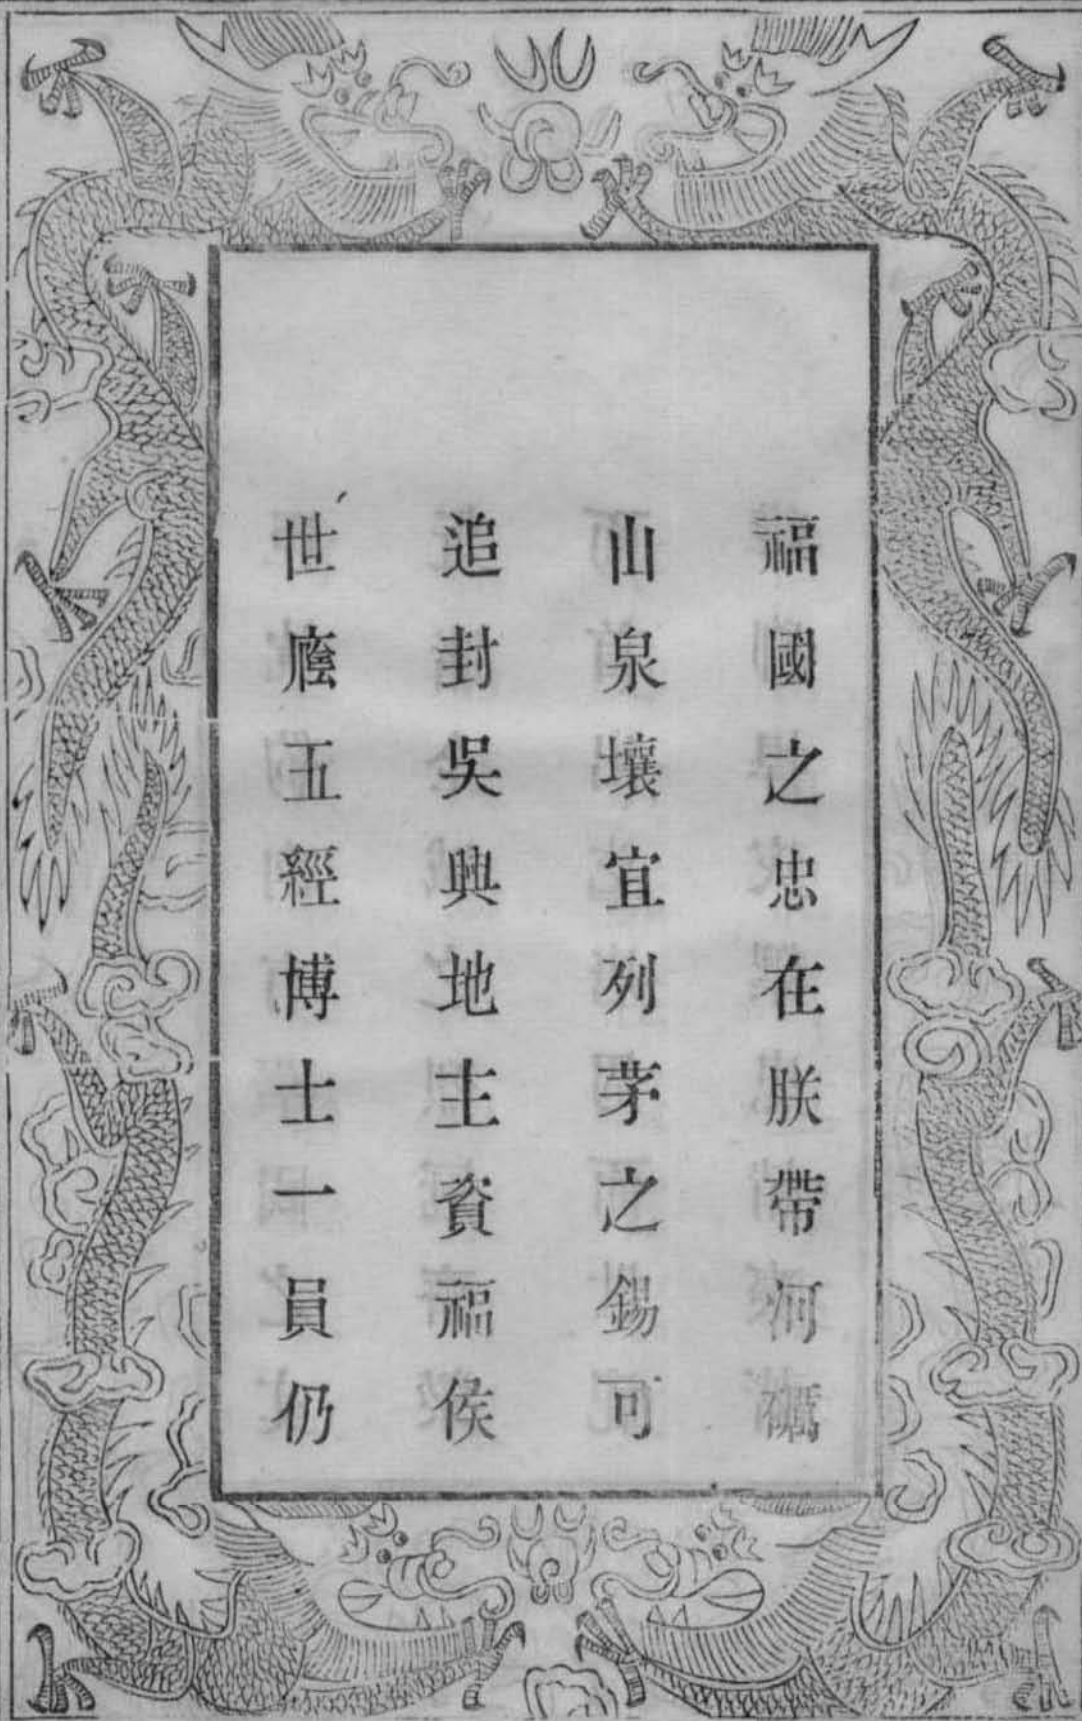 福國之忠在朕帶河礪
山泉壤宜列茅之錫可
追封吳興地主資福侯
世廕五經博士一員仍